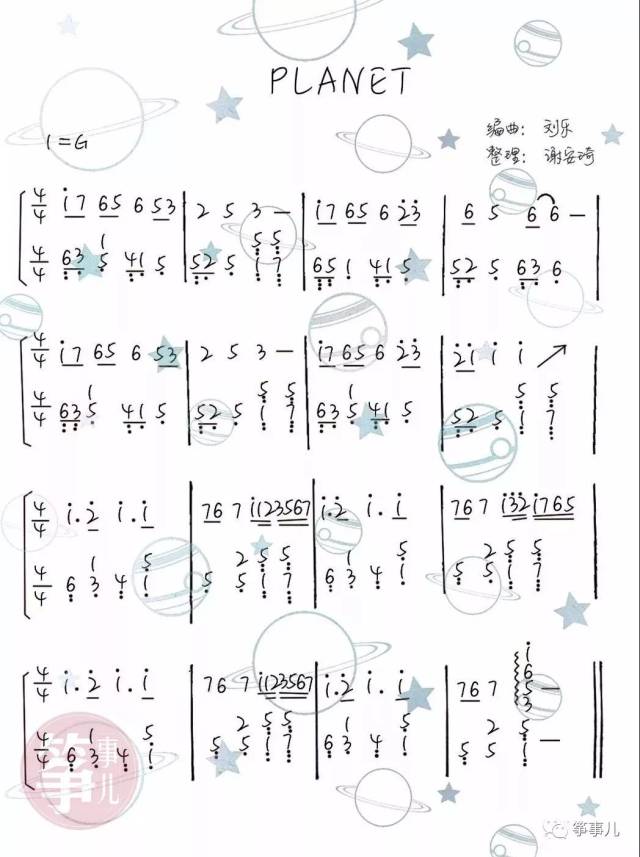 PLANET
1=G
编曲: 刘乐
整理: 谢安琦
4/4 i̇7 65 6 53 | 2 5 3 — | i̇7 65 6 2̇3̇ | 6 5 6 6 —
4/4 63 5 1 41 5 | 52 5 1 5 7 5 | 65 1 41 5 | 52 5 63 6
4/4 i̇7 65 6 53 | 2 5 3 — | i̇7 65 6 2̇3̇ | 2̇i̇ i̇ i̇ ↗
4/4 63 5 1 41 5 | 52 5 1 5 7 5 | 63 5 1 41 5 | 52 5 1 5 7 5
4/4 i̇. 2̇ i̇. i̇ | 76 7 i̇i̇2̇3̇5̇6̇7̇ | i̇. 2̇ i̇. i̇ | 76 7 i̇3̇2̇ i̇765
4/4 6 3 1 4 1 5 | 5 5 2 1 5 7 5 | 6 3 1 4 1 5 | 5 5 2 1 5 7 5
4/4 i̇. 2̇ i̇. i̇ | 76 7 i̇i̇2̇3̇5̇6̇7̇ | i̇. 2̇ i̇. i̇ | 76 7 i̇ 6 5 3 —
4/4 6 3 1 4 1 5 | 5 5 2 1 5 7 5 | 6 3 1 4 1 5 | 5 5 2 1 5 —
筝事儿
筝事儿